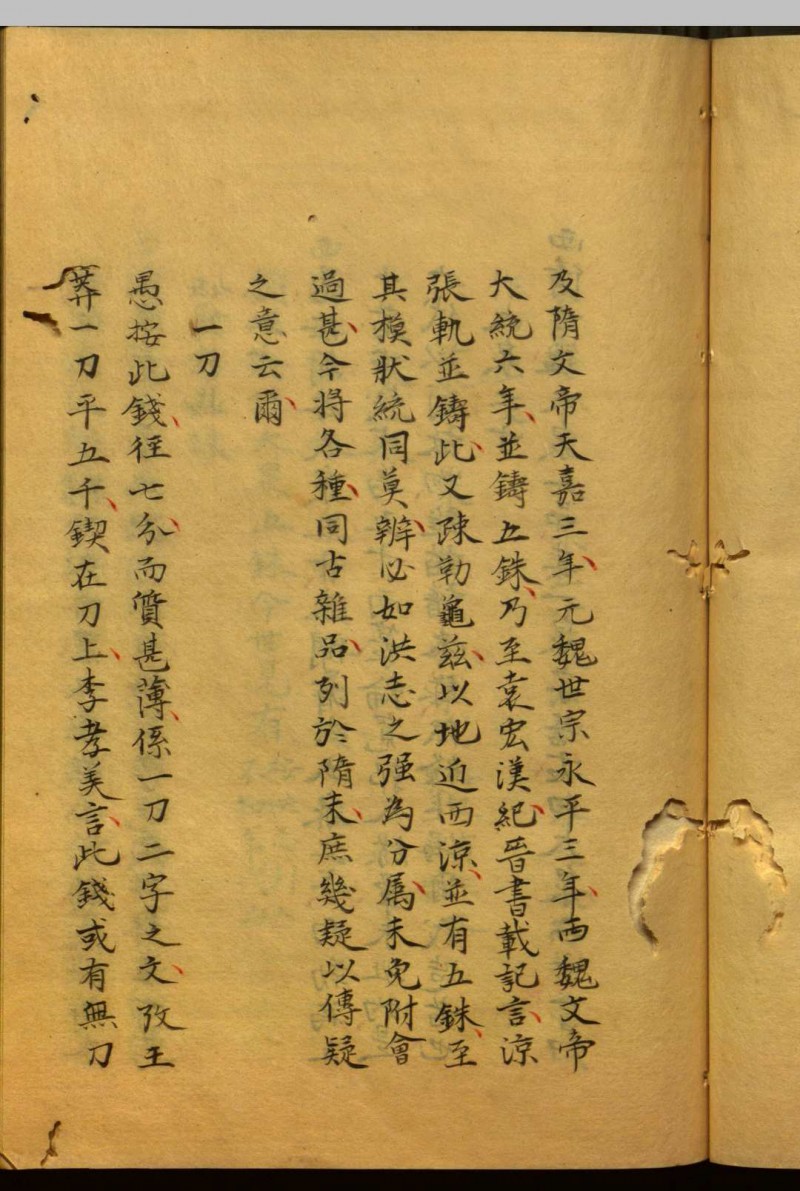 及隋文帝天嘉三年元魏世宗永平三年西魏文帝
大統六年並鑄五銖乃至袁宏漢紀晉書載記言涼
張軌並鑄此又疎勒龜茲以地近西涼並有五銖至
其模狀統同莫辦必如洪志之强為分属未免附會
過甚今将各種同古雜品列於隋末庶幾疑以傳疑
之意云爾
一刀
愚按此錢徑七分而質甚薄係一刀二字之文攷王
莽一刀平五千鍥在刀上李孝美言此錢或有無刀